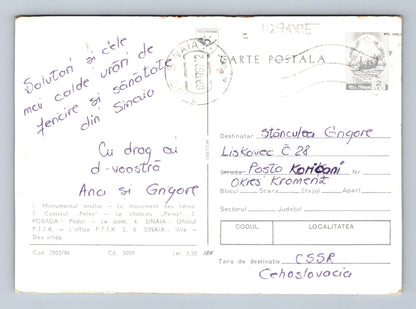 Salutări și cele
mai calde urări de
fericire și sănătate
din Sinaia
Cu drag cu
d-voastră
Ana și Grigore
1. Monumentul eroilor – Le monument des héros.
2. Castelul „Peleș". – Le château „Peleș". 3.
POSADA: Podul – Le pont. 4. SINAIA: Oficiul
P.T.T.R. – L'office P.T.T.R. 5, 6. SINAIA: Vile –
Des villas
Cod 7503/86
Cd. 5009
Lei 3,50
SINAIA
CARTE POSTALA
Destinatar Stănculea Grigore
Liskovec Č 28
Strada Poșta Nr.
Okres
Blocul Scara Etajul Apart.
Sectorul Județul
CODUL
LOCALITATEA
Țara de destinație CSSR
Cehoslovacia